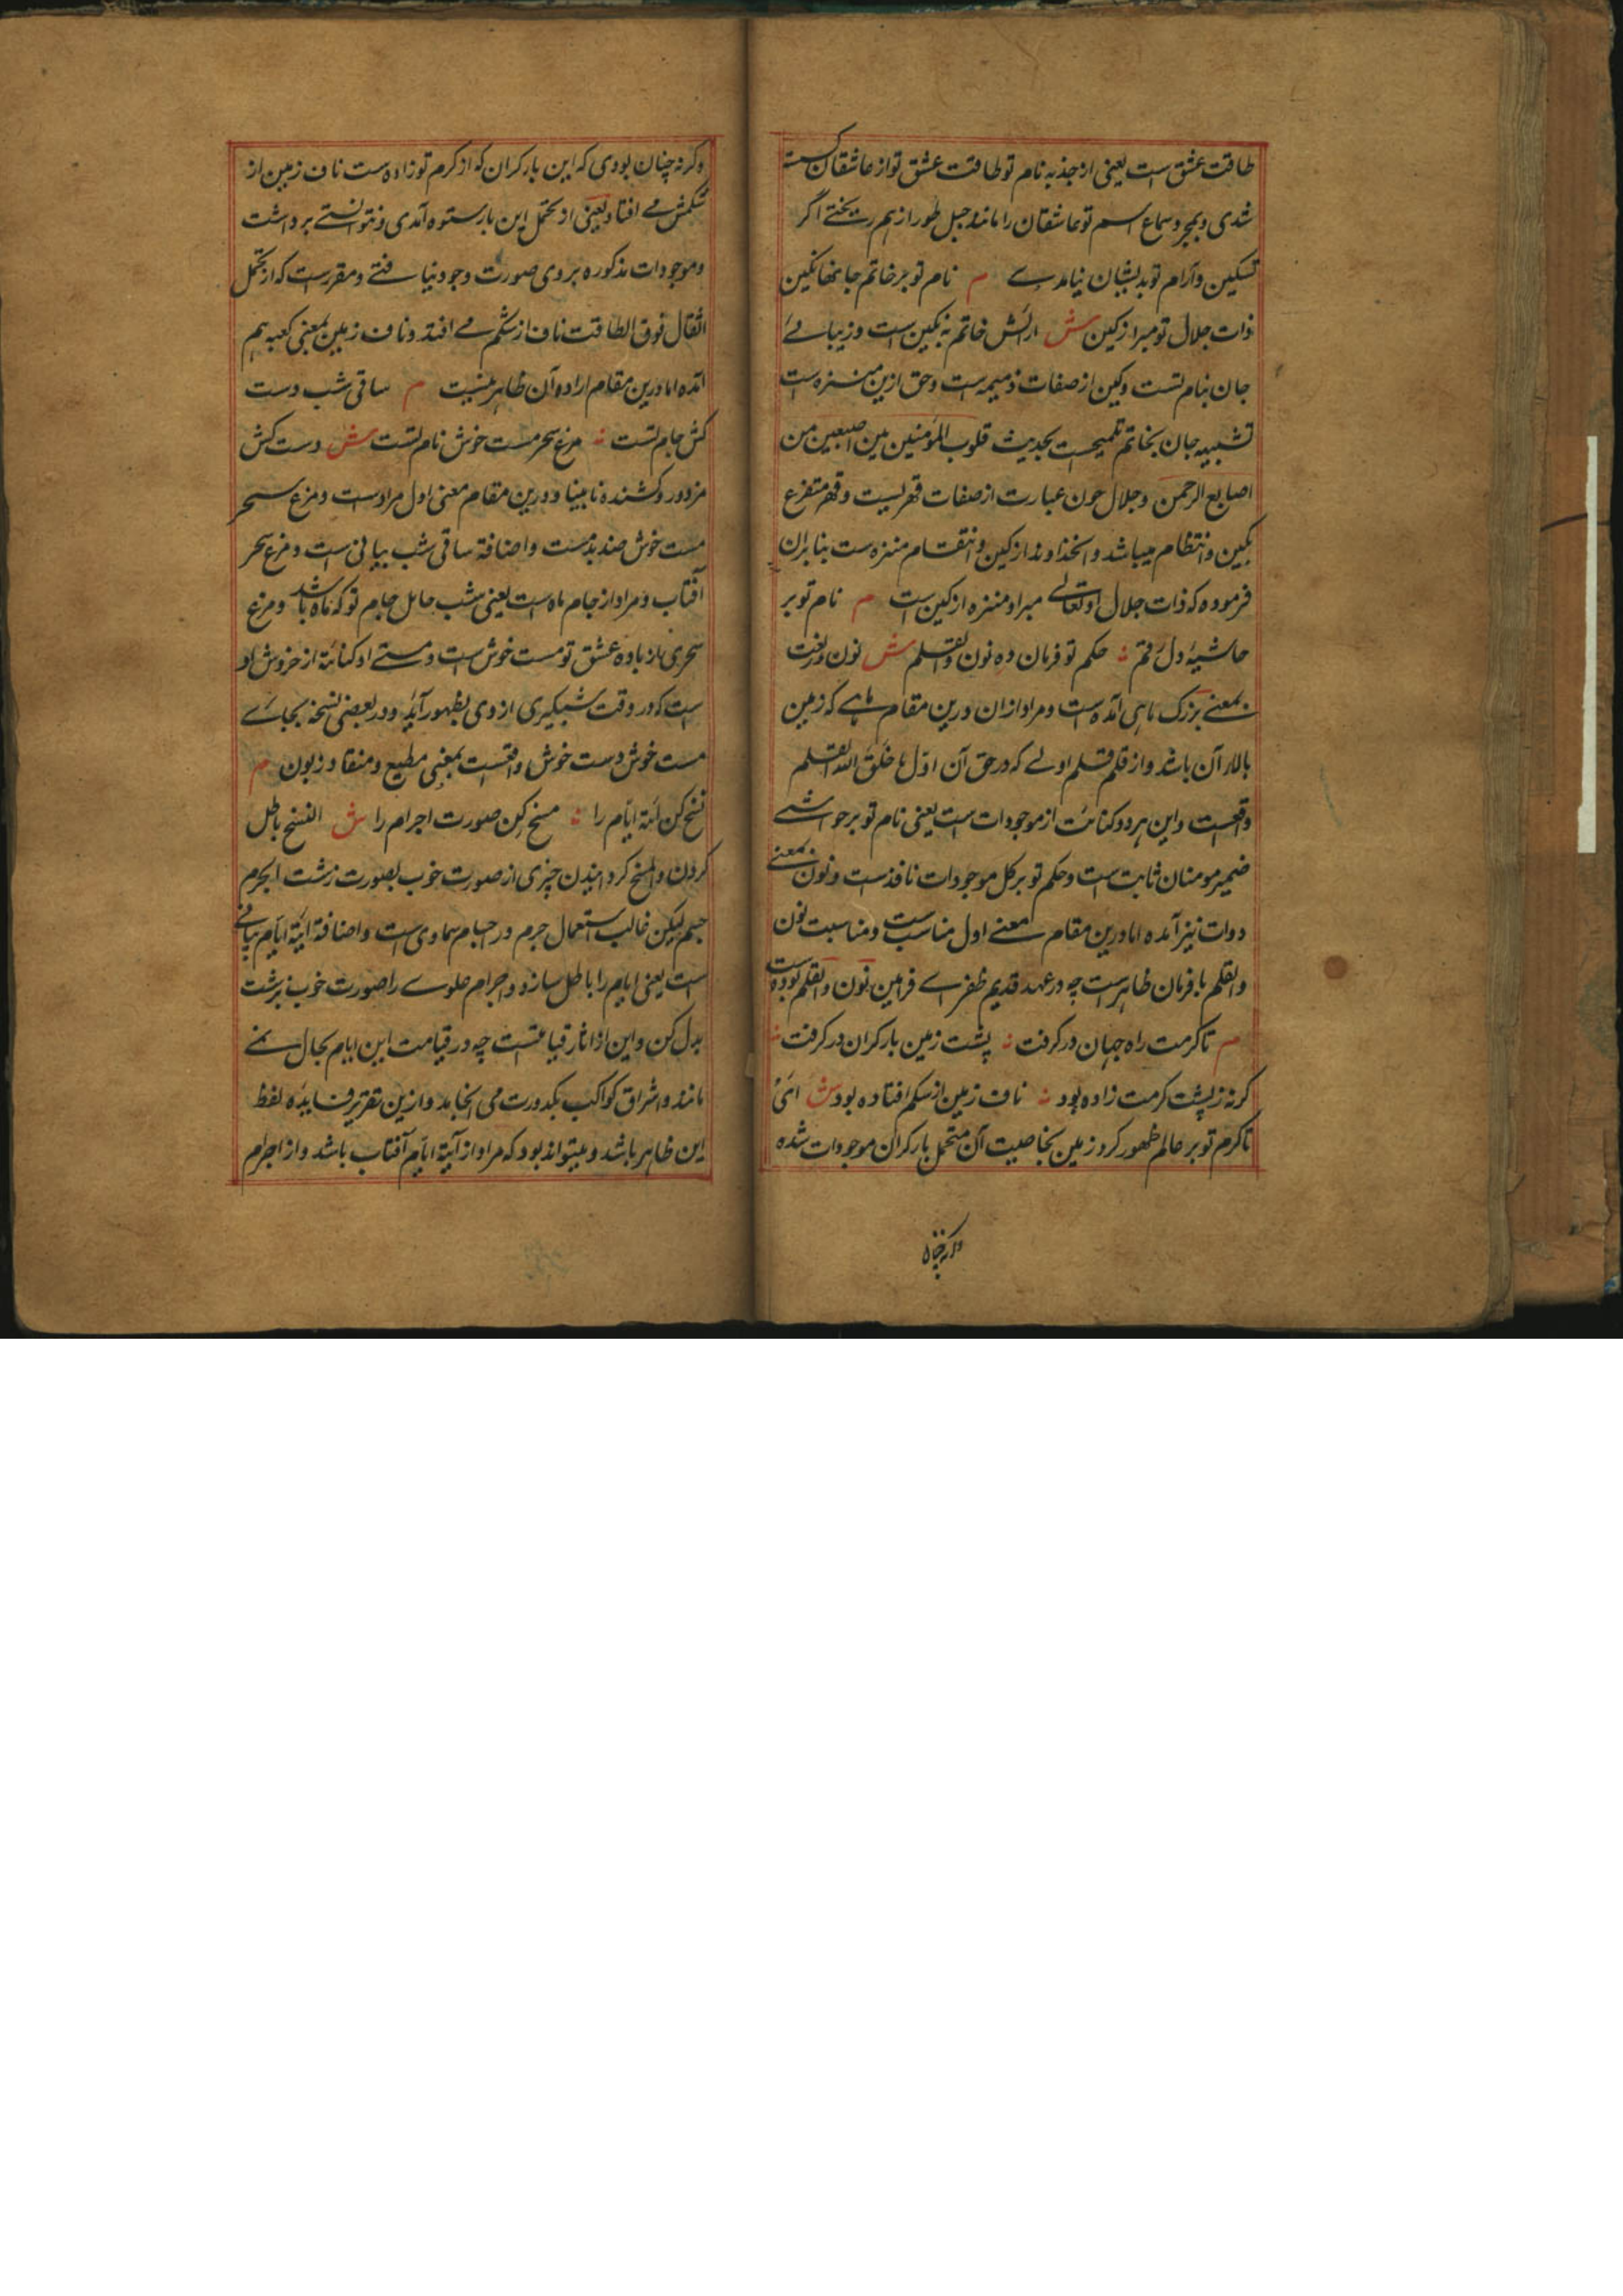 طاقت عشق است یعنی از جذبه نام تو طاقت عشق تو از عاشقان گسسته
شدی و بمجرد سماع اسم تو عاشقان را مانند جبل طور از هم ریختے اگر
تسکین و آرام تو بدیشان نیامدے م نام تو بر خاتم جانها نگین
ذات جلال تو مبرا ز کین ش ارائش خاتم به نگین است و زیبائے
جان بنام تست و کین از صفات ذمیمه است و حق ازین منزه است
تشبیه جان بخاتم تلمیحست بحدیث قلوب المؤمنین بین اصبعین من
اصابع الرحمن و جلال چون عبارت از صفات قهریست و قهر متفرع
بکین و انتظام میباشد و انخداوند از کین و انتقام منزه ست بنابران
فرموده که ذات جلال او تعالی مبرا و منزه از کین است م نام تو بر
حاشیهٔ دل رقم نه حکم تو فرمان ده نون والقلم ش نون در لغت
بمعنے بزرک ماهی آمده است و مراد ازان درین مقام ماهے که زمین
بالاء آن باشد و از قلم قلم اولے که در حق آن اول ما خلق الله القلم
واقعست و این هر دو کنائت از موجودات است یعنی نام تو بر حواشے
ضمیر مومنان ثابت است و حکم تو بر کل موجودات نافذست و نون بمعنے
دوات نیز آمده اما درین مقام معنے اول مناسب ست و مناسبت نون
والقلم با فرمان ظاهرست چه در عهد قدیم طغرے فرامین نون والقلم بوده ست
م تا کرمت راه جهان در کرفت نه پشت زمین بار کران در کرفت نه
کر نه ز پشت کرمت زاده بود نه ناف زمین از شکم افتاده بود ش ای
تا کرم تو بر عالم ظهور کرد زمین بخاصیت آن متحمل بار کران موجودات شده
وکرنه چنان
وکرنه چنان بودی که این بار کران که از کرم تو زاده ست ناف زمین از
شکمش مے افتاد یعنی از تحمل این بار ستوه آمدی و نتوانستے برداشت
و موجودات مذکوره بروی صورت وجود نیافتے و مقررست که از تحمل
اثقال فوق الطاقت ناف از شکم مے افتد و ناف زمین بمعنی کعبه هم
آمده اما درین مقام اراده آن ظاهر نیست م ساقی شب دست
کش جام تست نه مرغ سحر مست خوش نام تست ش دست کش
مزدور و کشنده نابینا و درین مقام معنی اول مرادست و مرغ سحر
مست خوش ضد بدمست و اضافة ساقی شب بیانی است و مرغ سحر
آفتاب و مراد از جام ماه ست یعنی شب حامل جام تو که ماه باشد و مرغ
سحری از باده عشق تو مست خوش است و مستے او کنایة از خروش او
ست که در وقت شبگیری از وی بظهور آید و در بعضی نسخه بجاے
مست خوش دست خوش واقعست بمعنی مطیع و منقاد و زبون م
نسخ کن آیة ایام را نه مسخ کن صورت اجرام را ش النسخ باطل
کردن و المسخ کردانیدن چیزی از صورت خوب بصورت زشت الجرم
جسم لیکن غالب استعمال جرم در اجسام سماوی است و اضافة آیة ایام بیانے
ست یعنی ایام را باطل سازد و اجرام علوے را صورت خوب بزشت
بدل کن و این از اثار قیامتست چه در قیامت این ایام بحال نمے
ماند و اشراق کواکب بکدورت می انجامد و ازین تقریر فایده لفظ
این ظاهر باشد و میتواند بود که مراد از آیة ایام آفتاب باشد و از اجرام